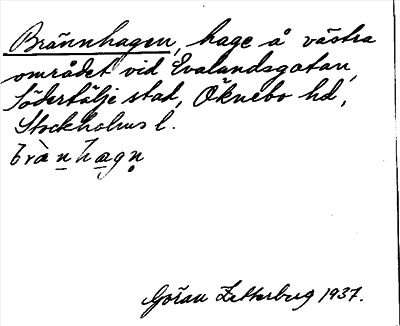 Brännhagen, hage å västra
området vid Evalundsgatan,
Södertälje stad, Öknebo hd,
Stockholms l.
bràn̲hæ̲gn̥
Göran Zetterberg 1937.